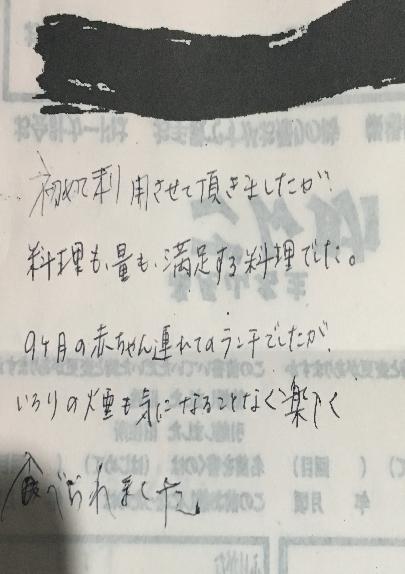 初めて利用させて頂きましたが、
料理も、量も、満足する料理でした。
9ヶ月の赤ちゃん連れてのランチでしたが、
いろりの煙も気になることなく楽しく
食べられました。